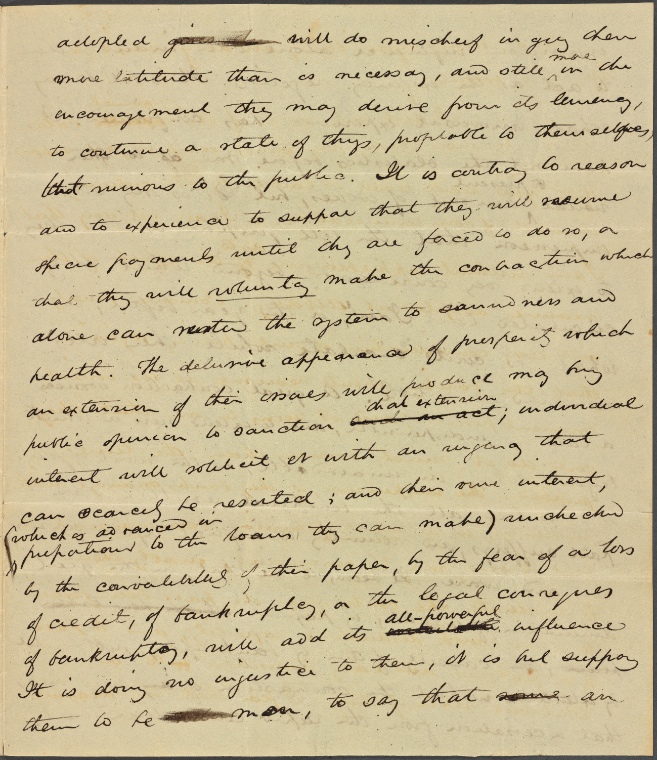 adopted will do mischief in givg them
more latitude than is necessay, and still more in the
encouragement they may derive from its lenency,
to continue a state of thgs, profitable to themselves,
but ruinous to the public. It is contray to reason
and to experience to suppose that they will resume
specie payments until they are forced to do so, or
that they will voluntay make the contraction which
alone can restore the system to soundness and
health. The delusive appearance of prosperity which
an extension of their issues will produce may brig
public opinion to sanction such an act that extension; individual
interest will solicit it with an urgency that
can scarcely be resisted; and their own interest,
(which is advanced in
proportion to the loans they can make) unchecked
by the convertibility of their paper, by the fear of a loss
of credit, of bankruptcy, or the legal conseques
of bankruptcy, will add its all-powerful influence
It is doing no injustice to them, it is but supposg
them to be men, to say that some an